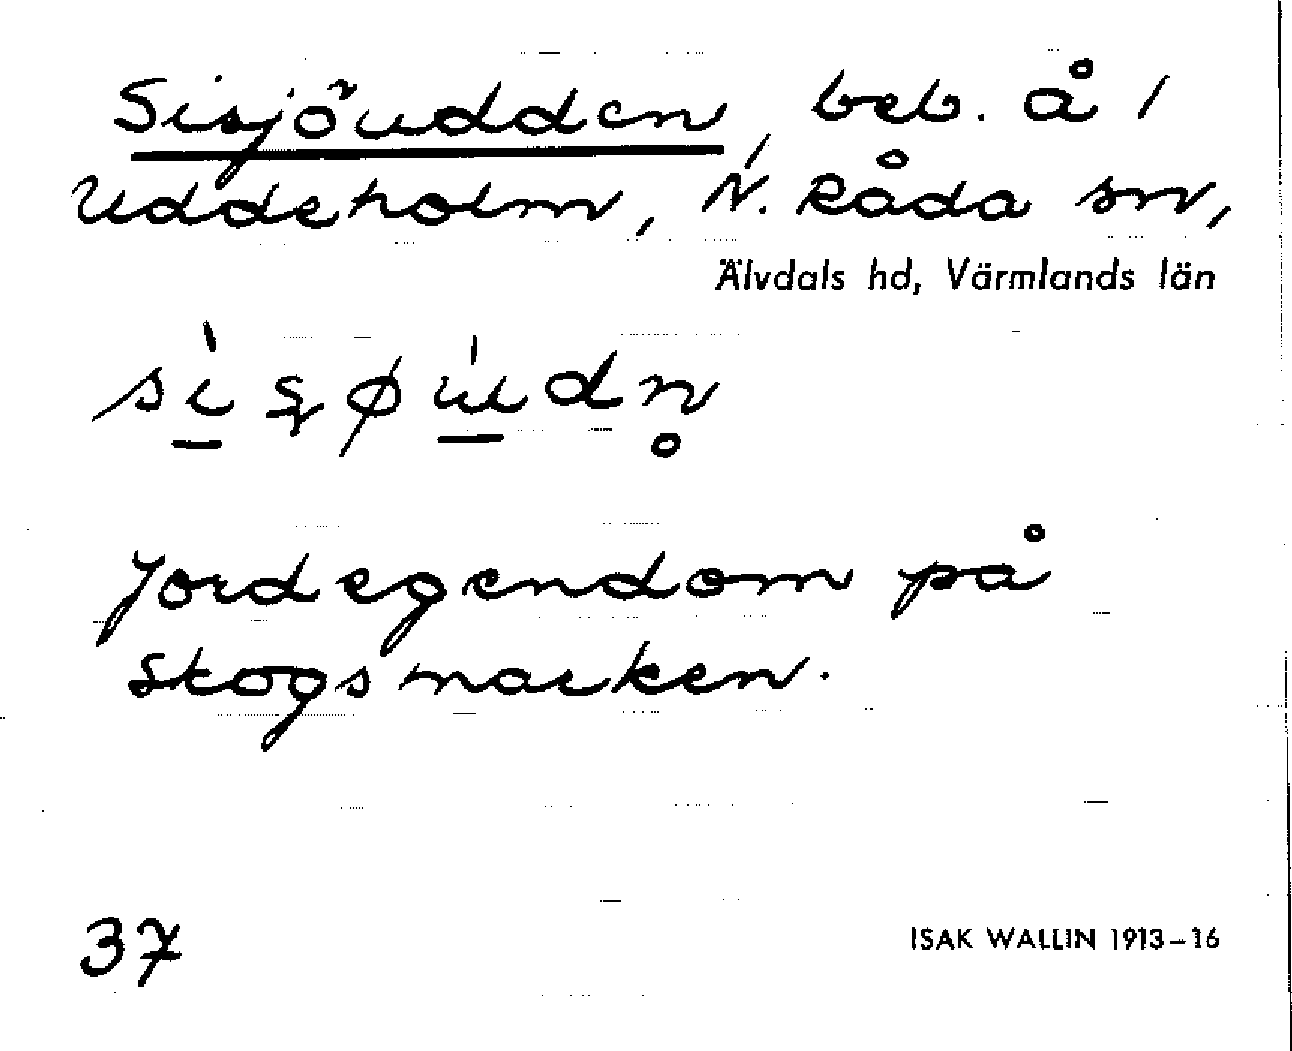 Sisjöudden, beb. å 1
Uddeholm, N. Råda sn,
Älvdals hd, Värmlands län
Jordegendom på
skogsmarken.
37
ISAK WALLIN 1913–16